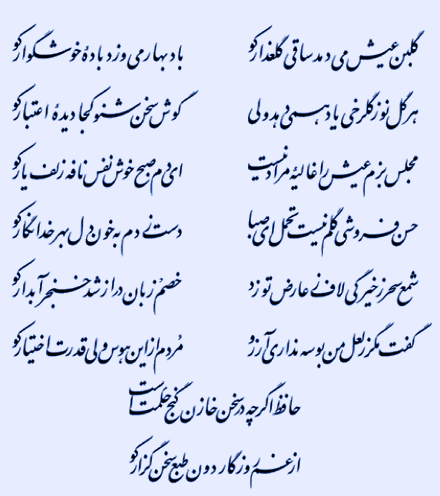 گلبن عیش می دمد ساقی گلعذار کو
باد بهار می وزد باده خوشگوار کو
هر گل نو ز گلرخی یاد همی دهد ولی
گوش سخن شنو کجا دیده اعتبار کو
مجلس بزم عیش را غالیه مراد نیست
ای دم صبح خوش نفس نافه زلف یار کو
حسن فروشی گلم نیست تحمل ای صبا
دست زدم به خون دل بهر خدا نگار کو
شمع سحر ز خیرگی لاف ز عارض تو زد
خصم زبان دراز شد خنجر آبدار کو
گفت مگر ز لعل من بوسه نداری آرزو
مردم از این هوس ولی قدرت اختیار کو
حافظ اگر چه در سخن خازن گنج حکمت است
از غم روزگار دون طبع سخن گزار کو